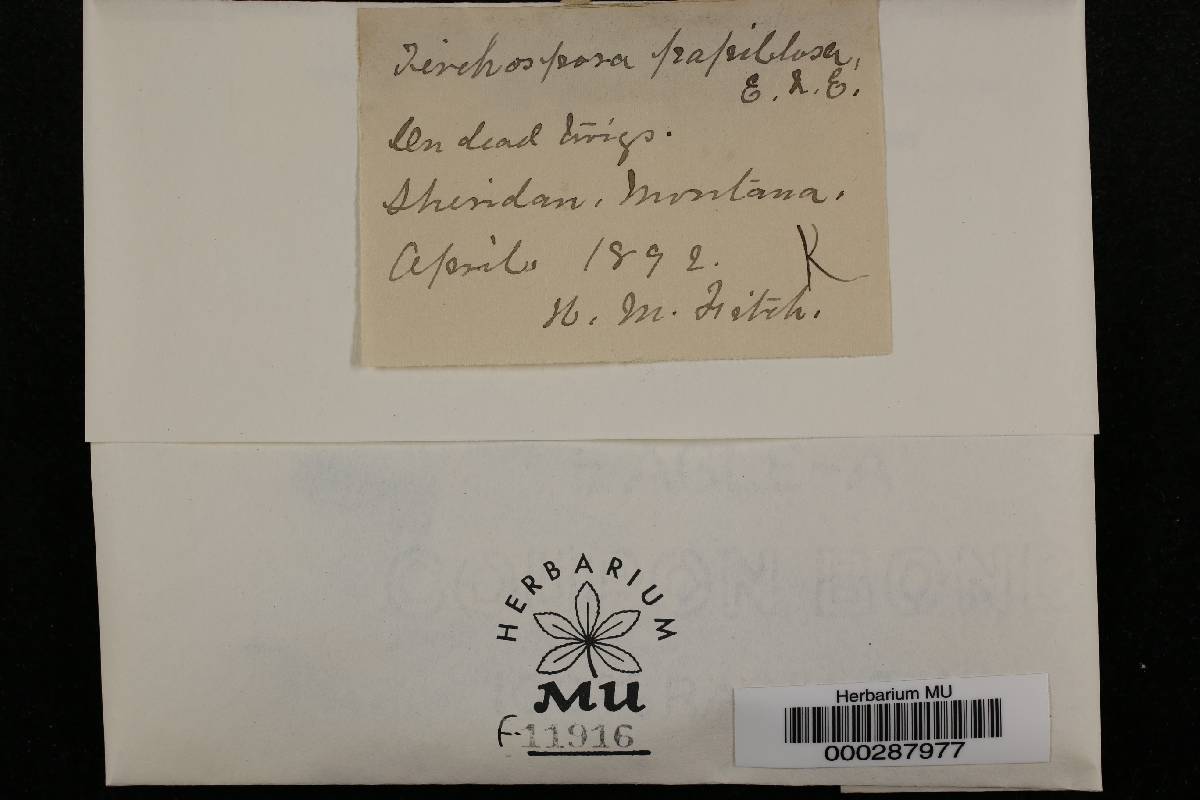 Teichospora papillosa,
E. & E.
On dead twigs.
Sheridan, Montana.
April. 1892. K
H. M. Fitch.
HERBARIUM
MU
F-11916
Herbarium MU
000287977